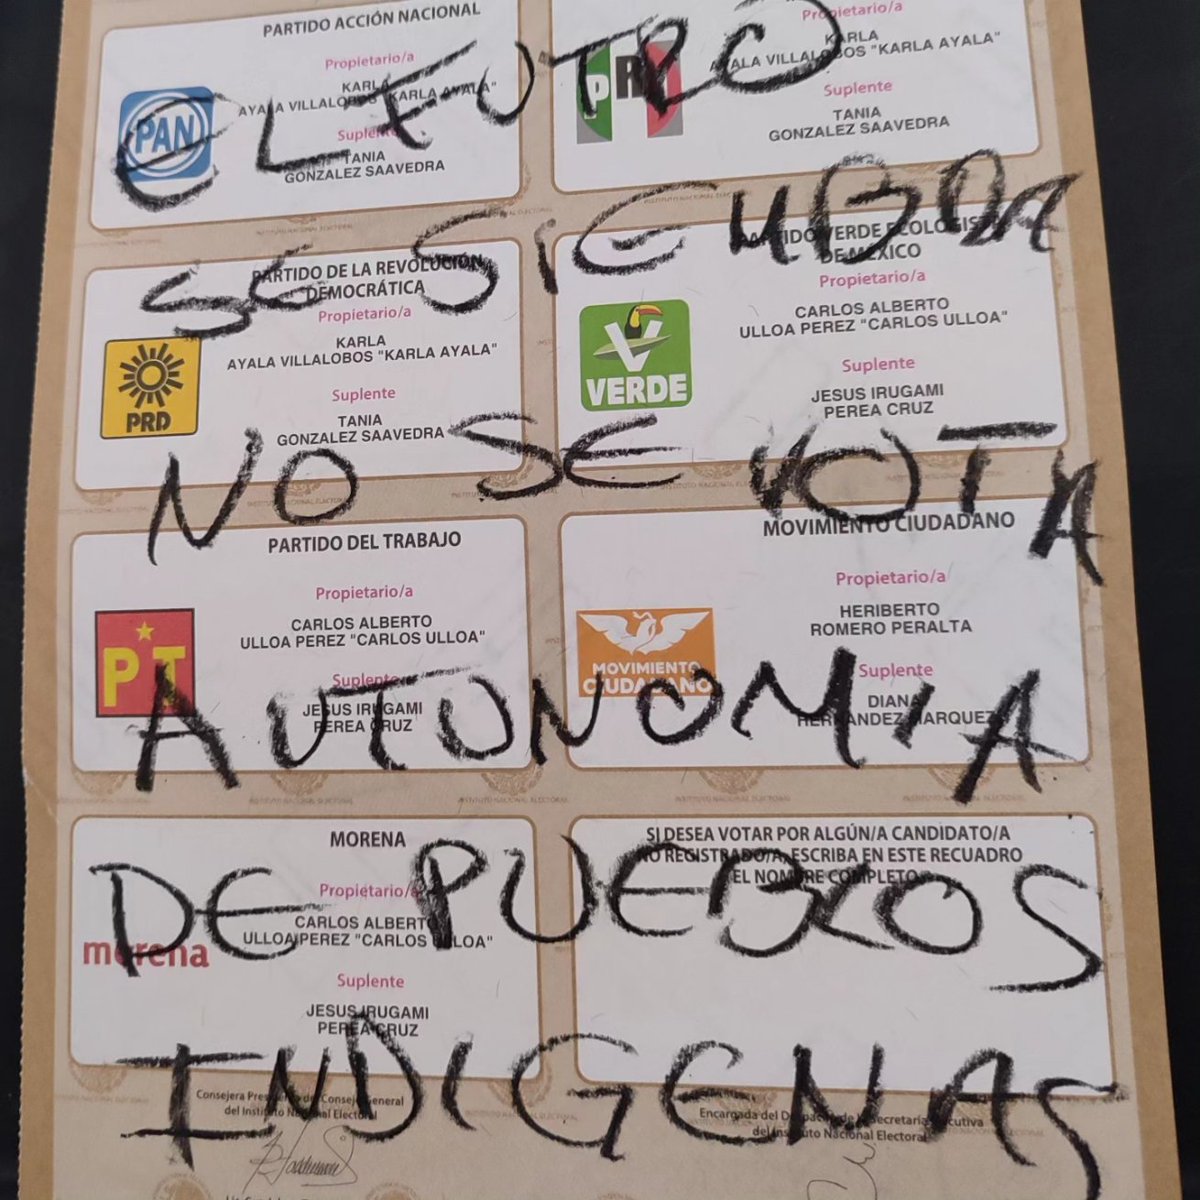 PARTIDO ACCIÓN NACIONAL
Propietario/a
KARLA
AYALA VILLALOBOS "KARLA AYALA"
Suplente
TANIA
GONZALEZ SAAVEDRA
PAN
Propietario/a
KARLA
AYALA VILLALOBOS "KARLA AYALA"
Suplente
TANIA
GONZALEZ SAAVEDRA
PRI
EL FUTRO
SE SIEMBRA
PARTIDO DE LA REVOLUCIÓN
DEMOCRÁTICA
Propietario/a
KARLA
AYALA VILLALOBOS "KARLA AYALA"
Suplente
TANIA
GONZALEZ SAAVEDRA
PRD
PARTIDO VERDE ECOLOGISTA
DE MÉXICO
Propietario/a
CARLOS ALBERTO
ULLOA PEREZ "CARLOS ULLOA"
Suplente
JESUS IRUGAMI
PEREA CRUZ
VERDE
NO SE VOTA
PARTIDO DEL TRABAJO
Propietario/a
CARLOS ALBERTO
ULLOA PEREZ "CARLOS ULLOA"
Suplente
JESUS IRUGAMI
PEREA CRUZ
PT
MOVIMIENTO CIUDADANO
Propietario/a
HERIBERTO
ROMERO PERALTA
Suplente
DIANA
HERNANDEZ MARQUEZ
MOVIMIENTO
CIUDADANO
AUTONOMIA
MORENA
Propietario/a
CARLOS ALBERTO
ULLOA PEREZ "CARLOS ULLOA"
Suplente
JESUS IRUGAMI
PEREA CRUZ
morena
SI DESEA VOTAR POR ALGÚN/A CANDIDATO/A
NO REGISTRADO/A, ESCRIBA EN ESTE RECUADRO
EL NOMBRE COMPLETO
DE PUEBLOS
INDIGENAS
Consejera Presidenta del Consejo General
del Instituto Nacional Electoral
Encargada del Despacho de la Secretaría Ejecutiva
del Instituto Nacional Electoral